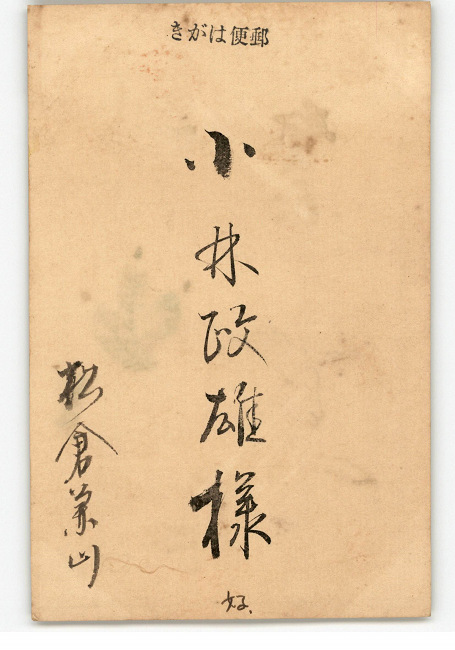 郵便はがき
小林政雄様
松倉葉山